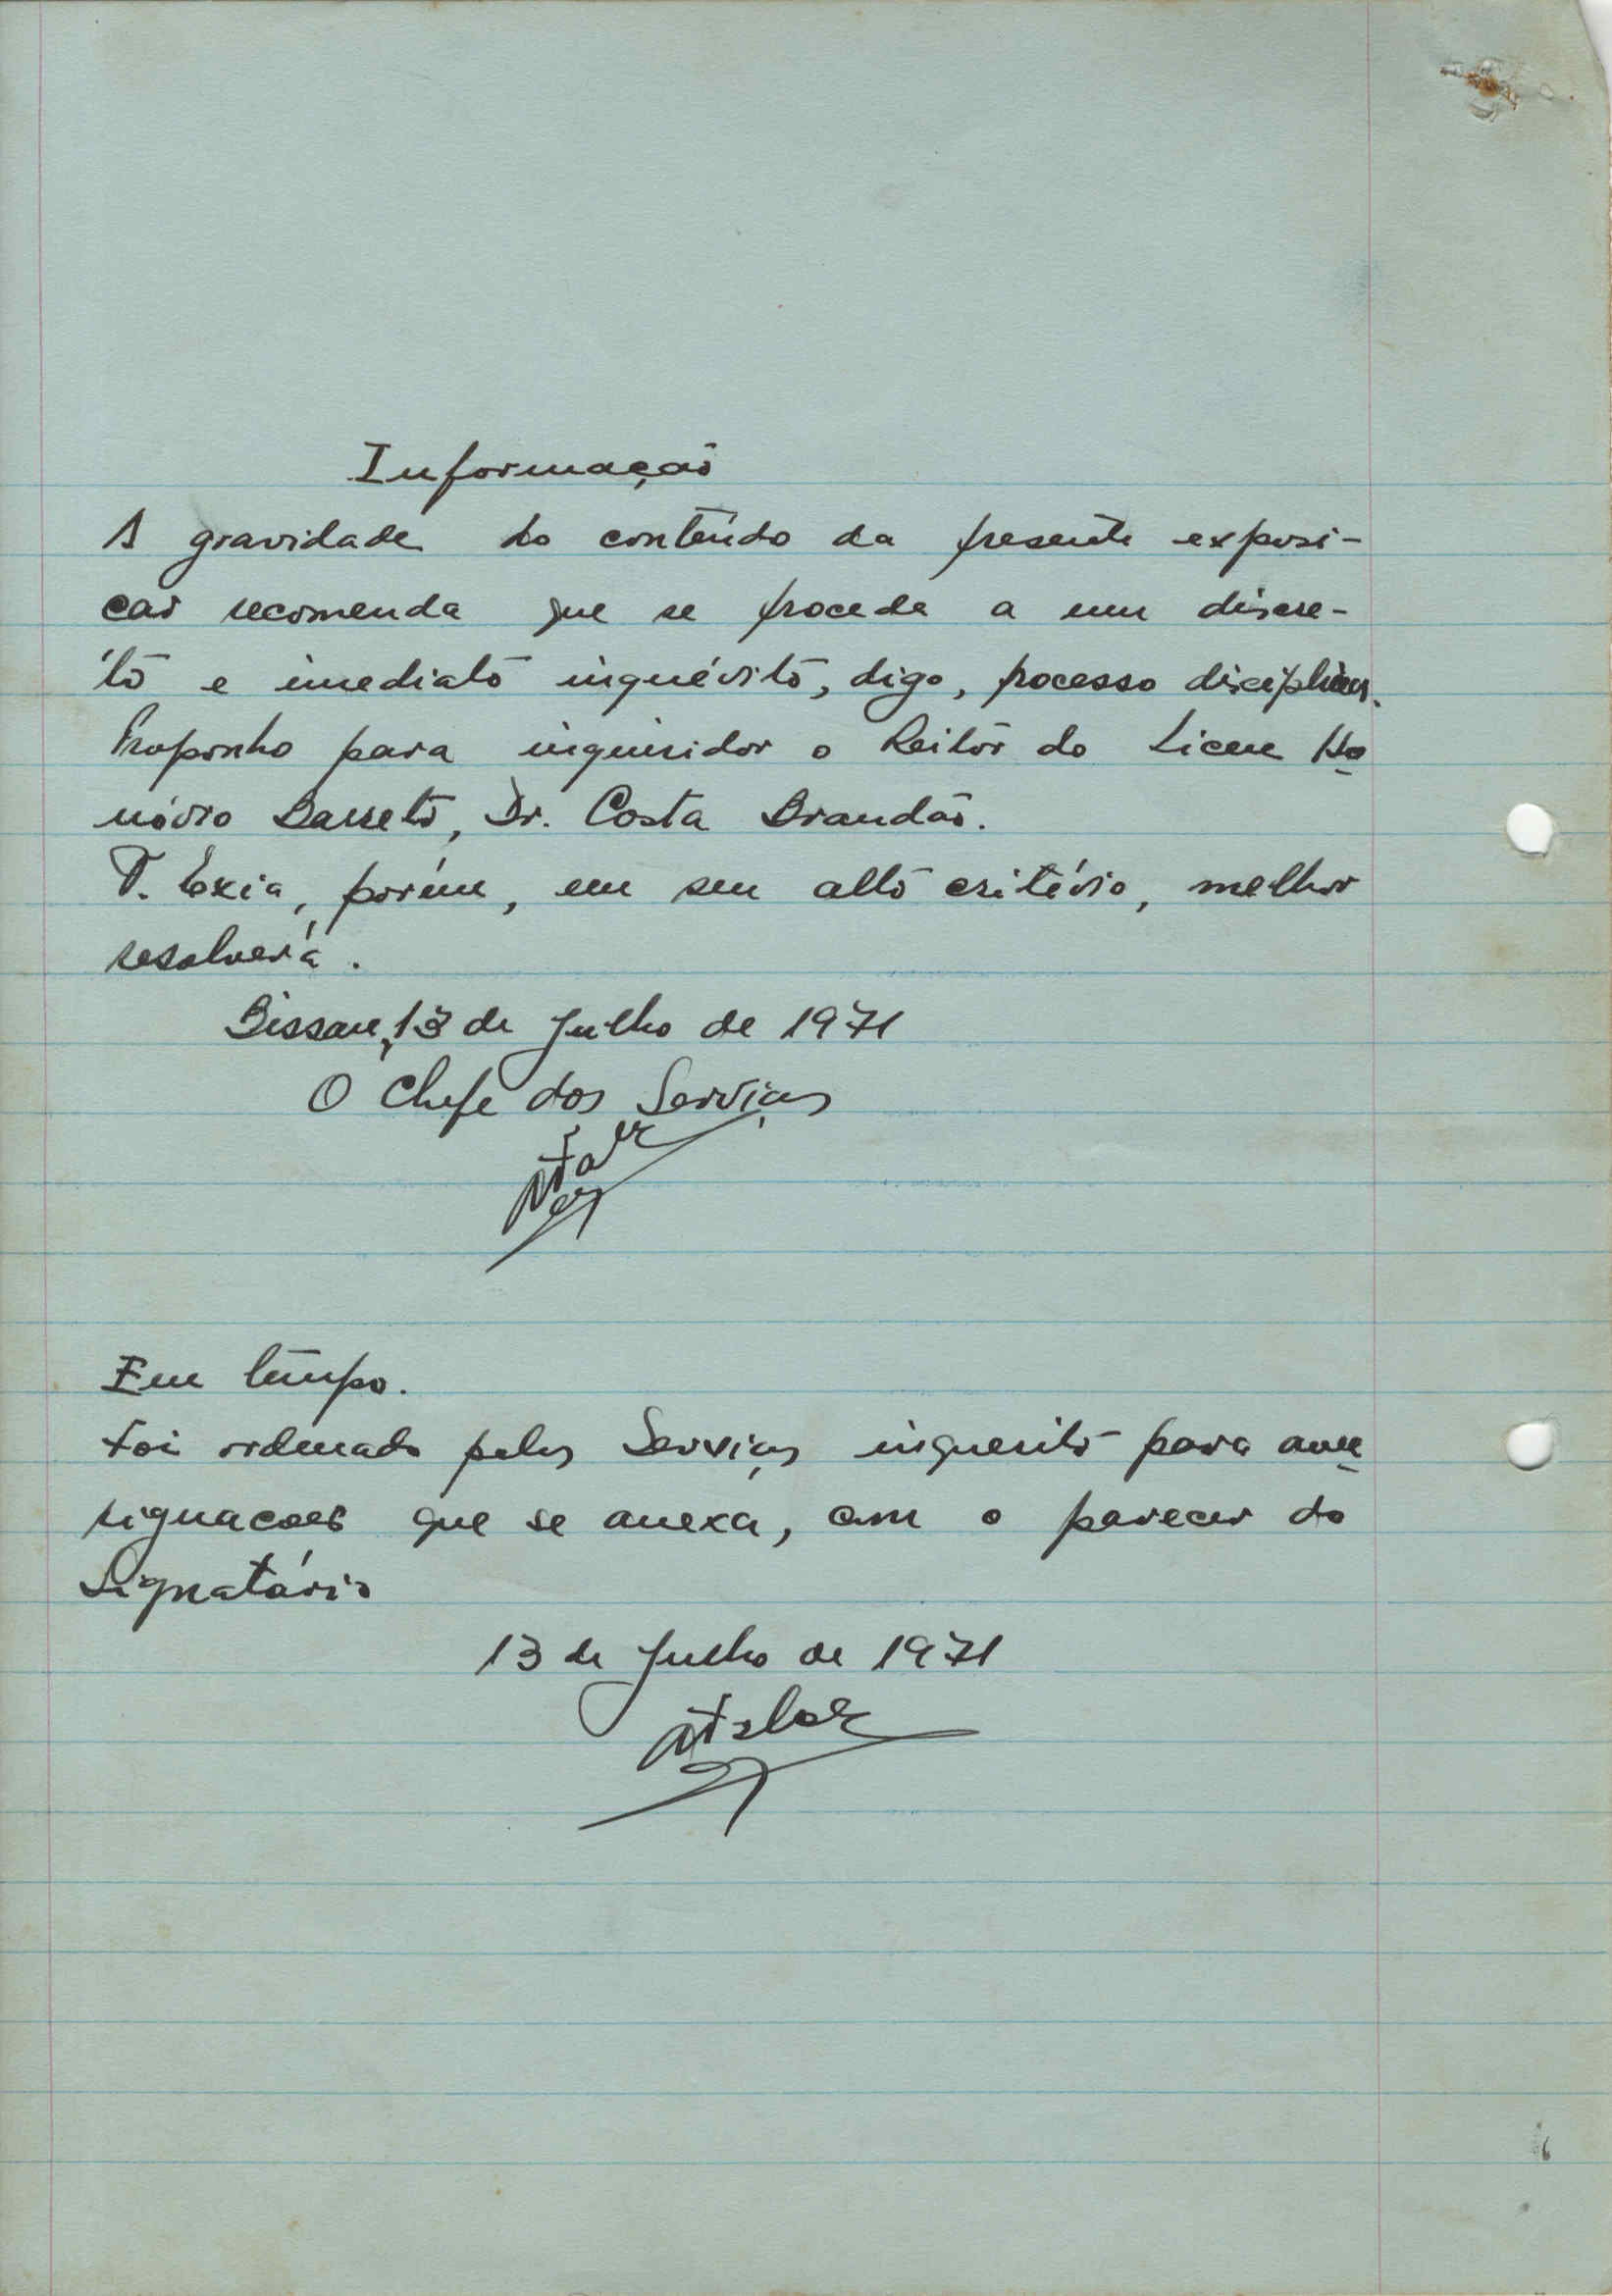 Informação
A gravidade do conteúdo da presente exposi-
ção recomenda que se proceda a um discre-
to e imediato inquérito, digo, processo disciplinar.
Proponho para inquiridor o Reitor do Liceu Ho
nório Barreto, Dr. Costa Brandão.
V. Exia, porém, em seu alto critério, melhor
resolverá.
Bissau, 13 de Julho de 1971
O Chefe dos Serviços
Em tempo.
Foi ordenado pelos Serviços inquerito para ave
riguacoes que se anexa, com o parecer do
Signatário
13 de Julho de 1971